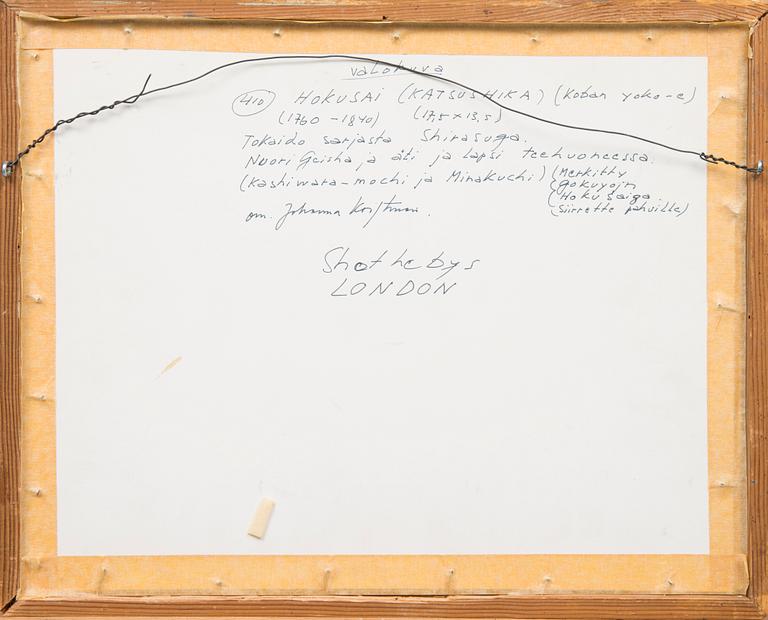 valokuva
410 HOKUSAI (KATSUSHIKA) (Koban yoko-e)
(1760 - 1840) (17,5 x 13,5)
Tokaido sarjasta Shirasuga.
Nuori Geisha ja äti ja lapsi teehuoneessa.
(Kashiwara-mochi ja Minakuchi) (Merkitty
Gokuyojn
(Hoku Saiga
om. Johanna (Siirretty pahville)
Shothebys
LONDON